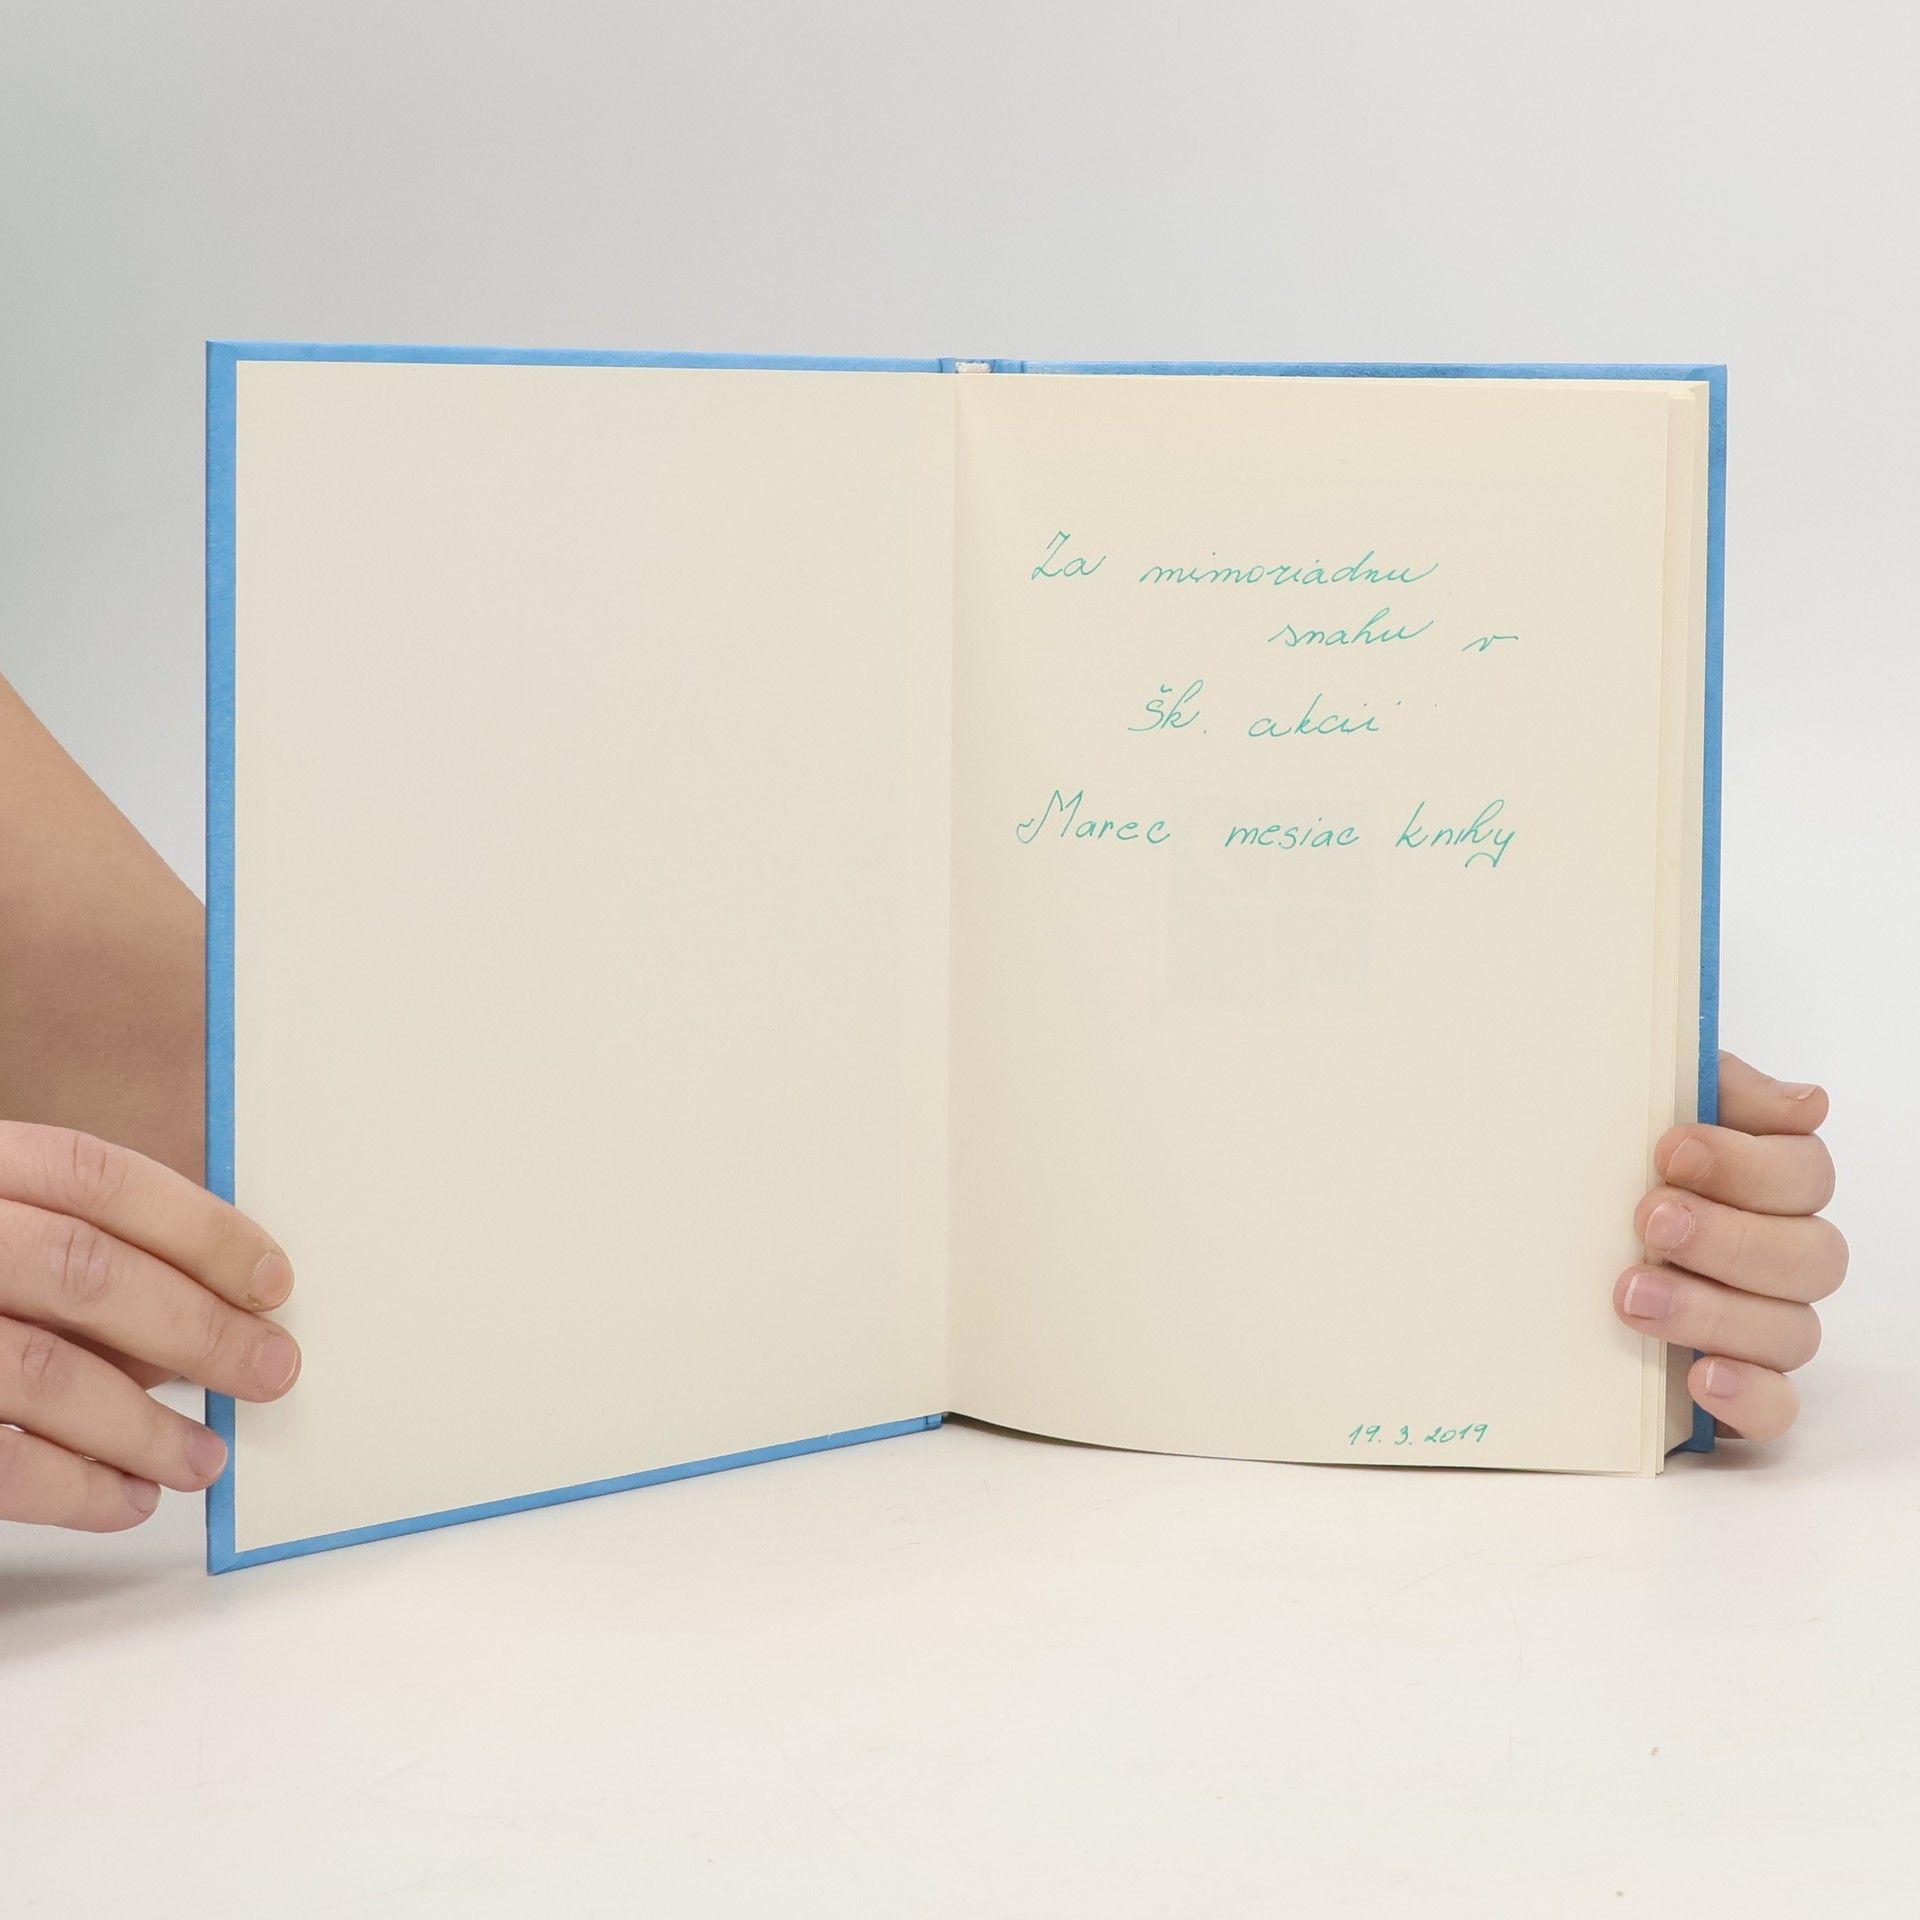 Za mimoriadnu
snahu v
Šk. akcii
Marec mesiac knihy
19. 3. 2019